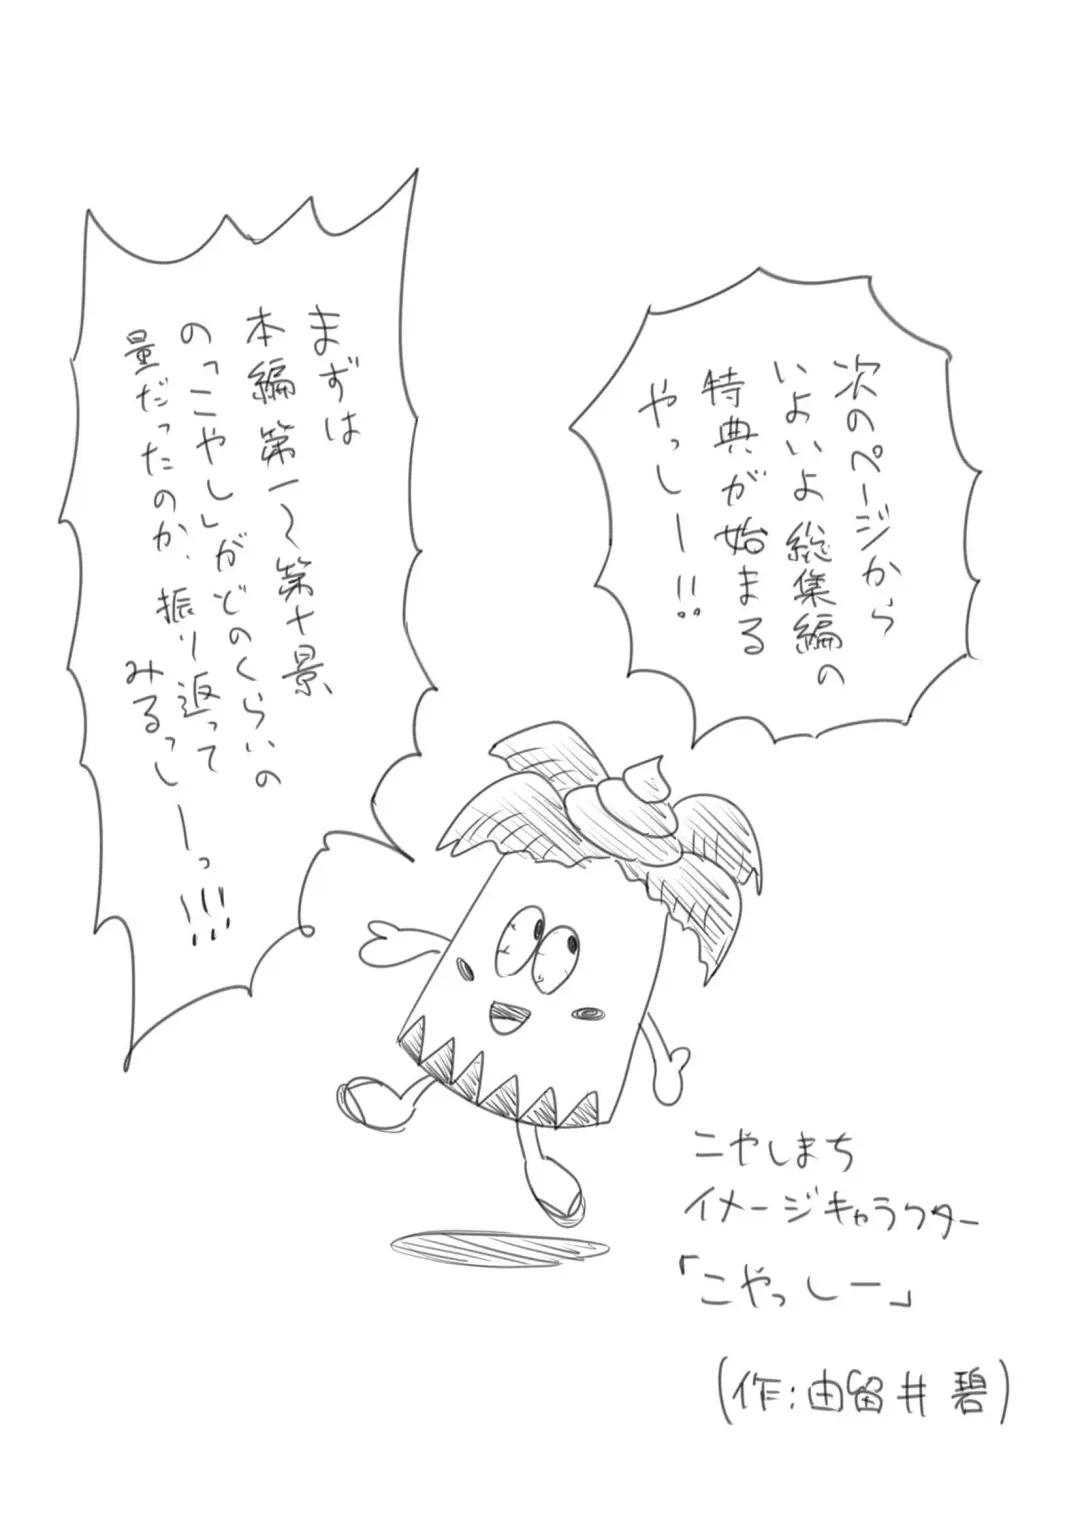 次のページから
いよいよ総集編の
特典が始まる
やっしー!!
まずは
本編第一〜第十景
の「こやし」がどのくらいの
量だったのか、振り返って
みるっしーっ!!!
こやしまち
イメージキャラクター
「こやっしー」
(作:由留井碧)